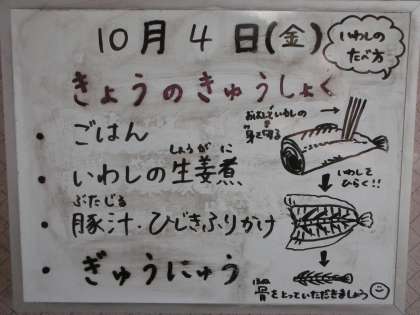 10月4日(金)
いわしの
たべ方
きょうのきゅうしょく
・ごはん
しょうが に
・いわしの生姜煮
ぶたじる
・豚汁・ひじきふりかけ
・ぎゅうにゅう
おはしでいわしの
身を切る
いわして
ひらく!!
ほね
骨をとっていただきましょう